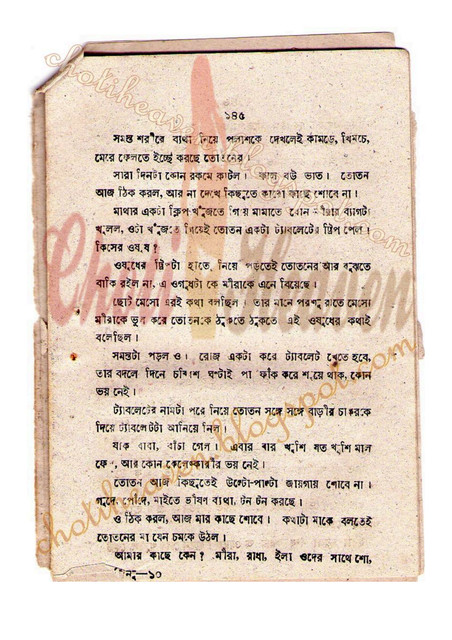 ১৪৫
সমস্ত শরীরে ব্যথা নিয়ে পলাশকে দেখলেই কামড়ে, খিমচে,
মেরে ফেলতে ইচ্ছে করছে তোতনের।
সারা দিনটা কোন রকমে কাটল। বউ ভাত। তোতন
আজ ঠিক করল, আর না দেখে কিছুতে কারো কাছে শোবে না।
মাথার একটা ক্লিপ খুঁজতে গিয়ে মামাতো বোন মীরার ব্যাগটা
খুলল, ওটা খুঁজতে গিয়েই তোতন একটা ট্যাবলেটের স্ট্রিপ পেল।
কিসের ওষুধ?
ওষুধের স্ট্রিপটা হাতে, নিয়ে পড়তেই তোতনের আর বুঝতে
বাকি রইল না, এ ওষুধটা কে মীরাকে এনে দিয়েছে।
ছোট মেসো এরই কথা বলছিল। তার মানে পরশু রাতে মেসো
মীরাকে ভুল করে তোতনকে ঠুকতে ঠুকতে এই ওষুধের কথাই
বলেছিল।
সমস্তটা পড়ল ও। রোজ একটা করে ট্যাবলেট খেতে হবে,
তার বদলে দিনে চব্বিশ ঘণ্টাই পা ফাঁক করে শুয়ে থাক, কোন
ভয় নেই।
ট্যাবলেটের নামটা পরে নিয়ে তোতন সঙ্গে সঙ্গে বাড়ীর চাকরকে
দিয়ে ট্যাবলেটটা আনিয়ে নিল।
যাক বাবা, বাঁচা গেল। এবার যার খুশি যত খুশি মাল
ফেলুক, আর কোন কেলেঙ্কারীর ভয় নেই।
তোতন আজ কিছুতেই উল্টো-পাল্টা জায়গায় শোবে না।
গুদে, পোঁদে, মাইতে ভীষণ ব্যথা, টন টন করছে।
ও ঠিক করল, আজ মার কাছে শোবে। কথাটা মাকে বলতেই
তোতনের মা যেন চমকে উঠল।
আমার কাছে কেন? মীরা, রাধা, ইলা ওদের সাথে শো,
—১০
chotiheaven.blogspot.com
Choti Heaven